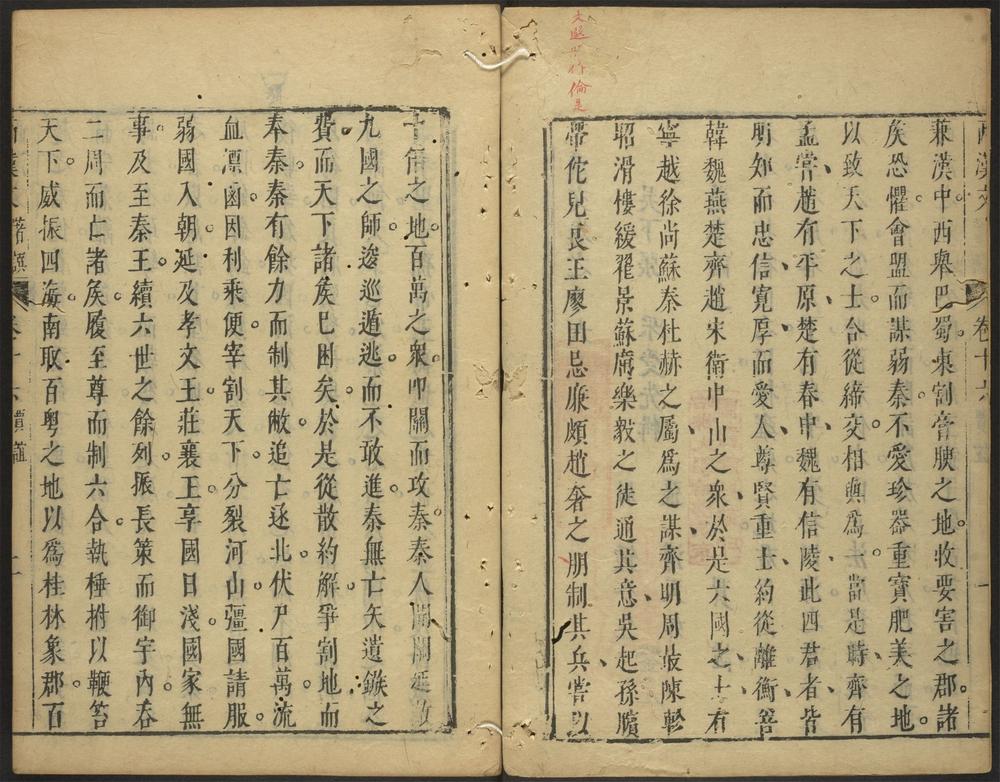 兼漢中西舉巴蜀東割膏腴之地收要害之郡諸
矦恐懼會盟而謀弱秦不愛珍器重寶肥美之地
以致天下之士合從締交相與爲一當是時齊有
孟嘗趙有平原楚有春申魏有信陵此四君者皆
明知而忠信寛厚而愛人尊賢重士約從離衡兼
韓魏燕楚齊趙宋衛中山之衆於是六國之士有
寧越徐尚蘇秦杜赫之屬爲之謀齊明周㝡陳軫
昭滑樓緩翟景蘇厲樂毅之徒通其意吳起孫臏
帶佗兒良王廖田忌廉頗趙奢之朋制其兵嘗以
十倍之地百萬之衆叩關而攻秦秦人開關延敵
九國之師逡巡遁逃而不敢進秦無亡矢遺鏃之
費而天下諸矦已困矣於是從散約解爭割地而
奉秦秦有餘力而制其敝追亡逐北伏尸百萬流
血漂鹵因利乘便宰割天下分裂河山彊國請服
弱國入朝延及孝文王莊襄王享國日淺國家無
事及至秦王續六世之餘列振長策而御宇內吞
二周而亡諸矦履至尊而制六合執棰拊以鞭笞
天下威振四海南取百粤之地以爲桂林象郡百